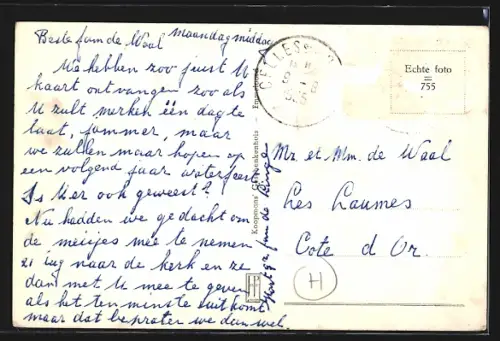 Beste fam de Waal Maandag middag
We hebben zoo juist U
kaart ontvangen zoo als
U zult merken één dag te
laat, jammer, maar
we zullen maar hopen op
een volgend jaar waterfeest
Is U er ook geweest?
Nu hadden we gedacht om
de meisjes mee te nemen
zee naar de kerk en ze
dan met U mee te geven
als het ten minste uit komt
maar dat bepraten we dan wel.
Echte foto
755
Mr. et Mm. de Waal
Les Laumes
Cote d Or.
H